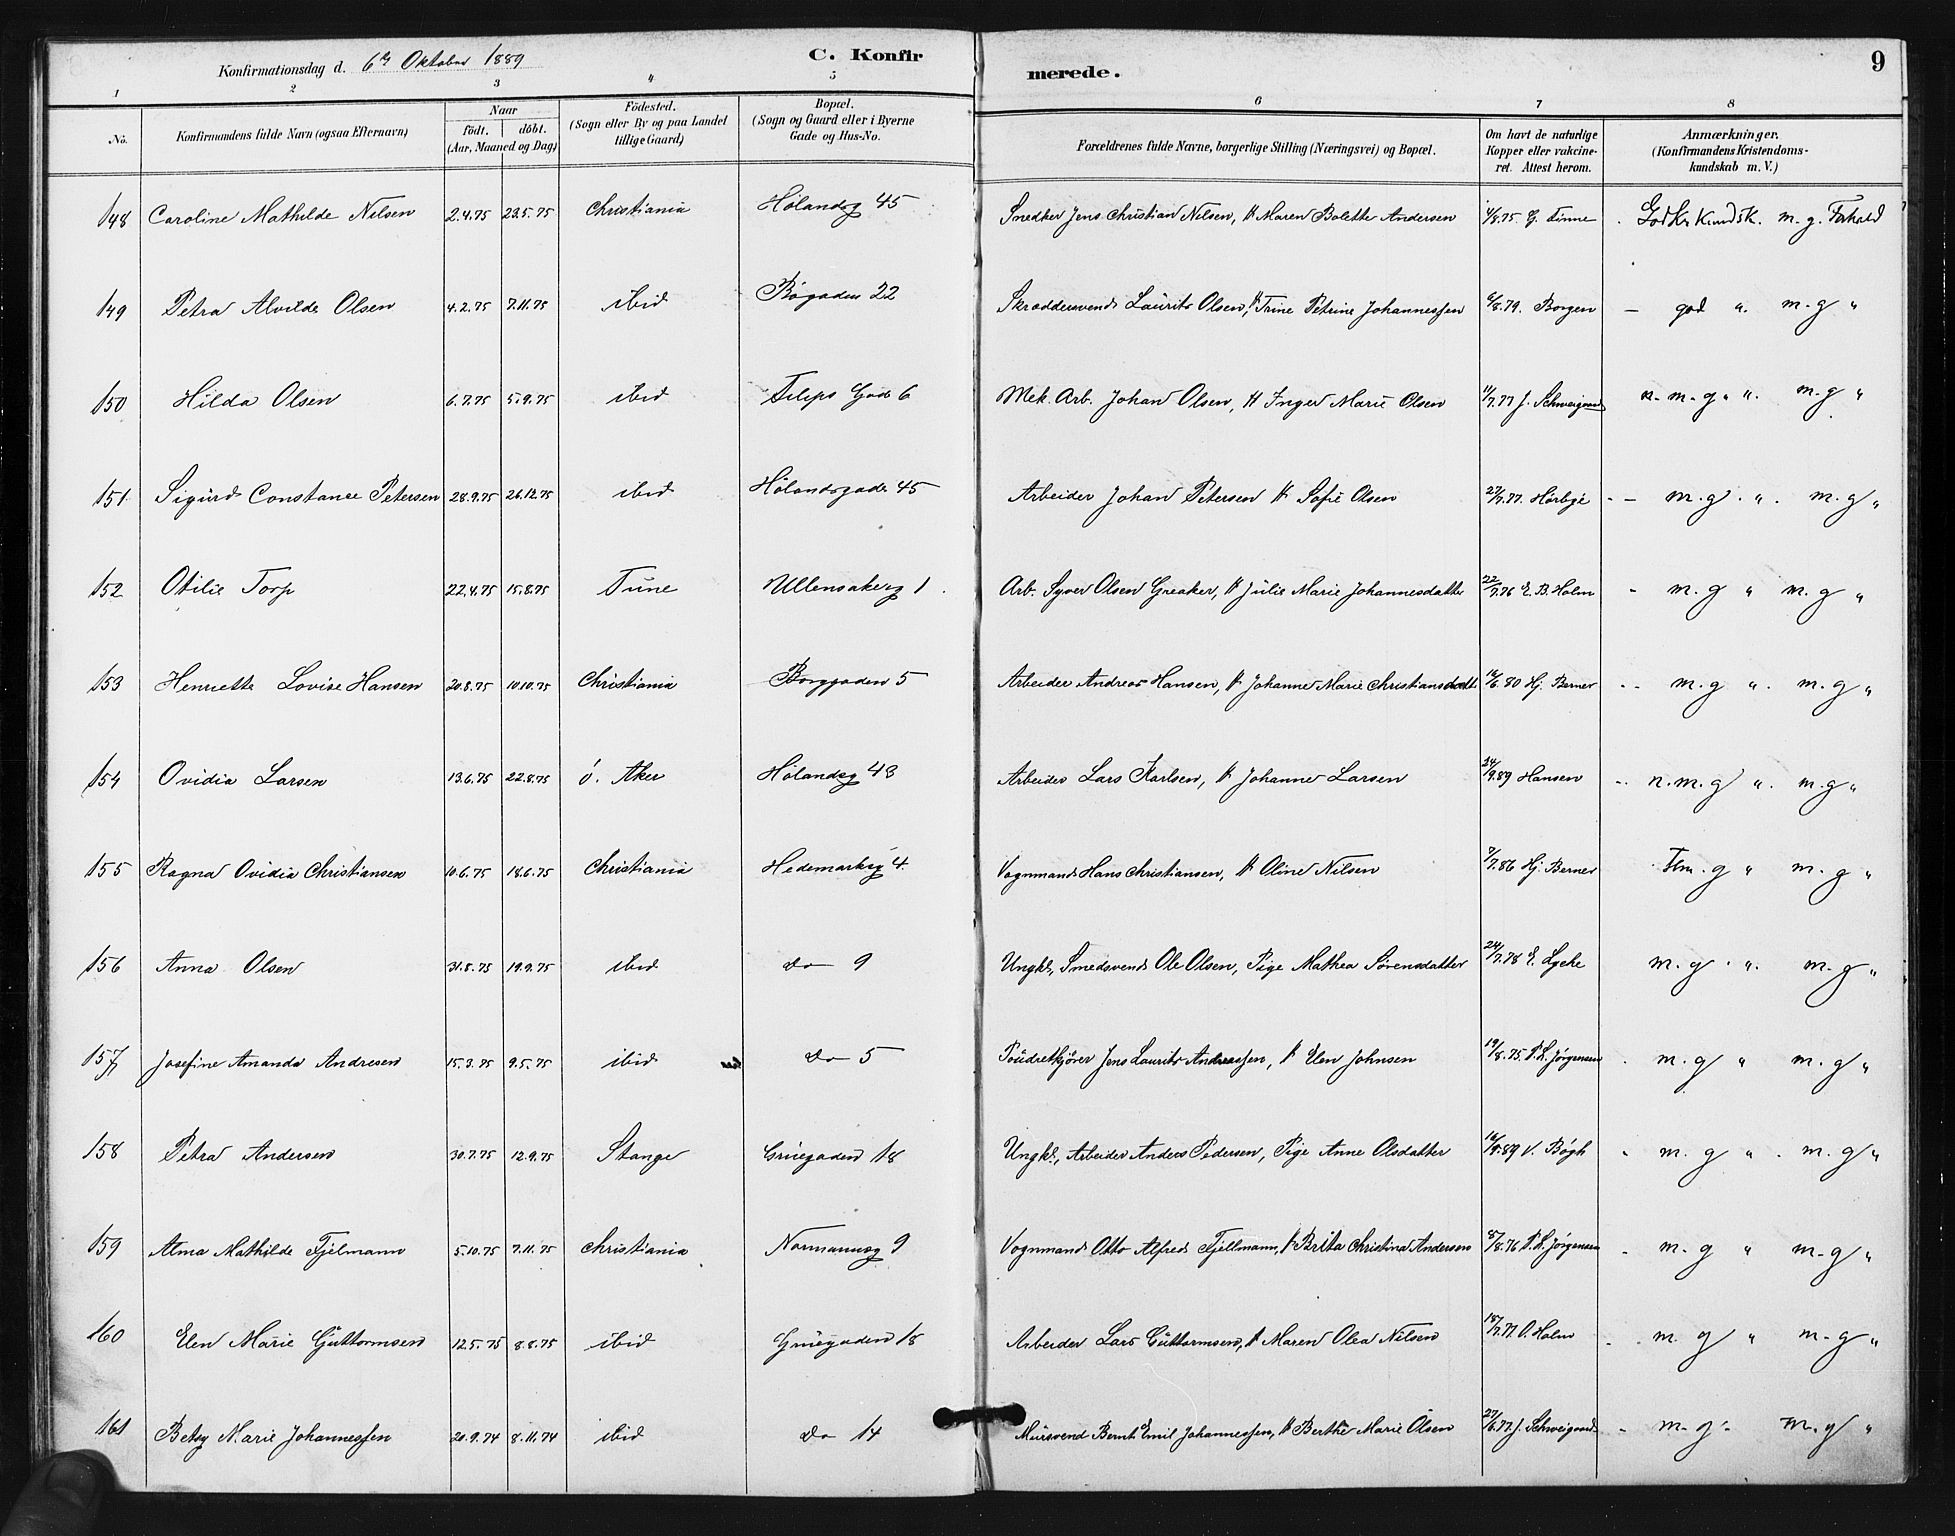 Konfirmationsdag d. 6te Oktober 1889 C. Konfirmerede. 9
1 2 3 4 5 6 7 8
No. Konfirmandens fulde Navn (ogsaa Efternavn) Naar födt. döbt. (Aar, Maaned og Dag) Födested. (Sogn eller By og paa Landet tillige Gaard) Bopæl. (Sogn og Gaard eller i Byerne Gade og Hus-No. Forældrenes fulde Navne, borgerlige Stilling (Næringsvei) og Bopæl. Om havt de naturlige Kopper eller vakcineret. Attest herom. Anmærkninger. (Konfirmandens Kristendomskundskab m. V.)
148 Caroline Mathilde Nilsen 2.4.75 23.5.75 Christiania Hölandsg 45 Snedker Jens Christian Nilsen, H Maren Bolette Andersen 4/8.75. G. Finne God Kr. Kundsk. m. g. Forhold
149 Petra Alvilde Olsen 4.2.75 7.11.75 ibid Bögaden 22 Skraddersvend Laurits Olsen, H Trine Petrine Johannessen 6/8.79. Borgen — god " m-g "
150 Hilda Olsen 6.7.75 5.9.75 ibid Filips Gad 6 Mek. Arb. Johan Olsen, H Inger Marie Olsen 11/7.77 J. Schweigaard n. m. g. " m.g "
151 Sigurd Constance Petersen 28.9.75 26.12.75 ibid Hölandsgade 45 Arbeider Johan Petersen H Sofie Olsen 27/7.77. Hörbye - - m. g. " m. g "
152 Otilie Torp 22.4.75 15.8.75 Tune Ullensakerg 1. Arb. Syver Olsen Greaker, H Julie Marie Johannesdatter 22/7.76 E. B. Holm - m. g " m. g "
153 Henriette Lovise Hansen 20.8.75 10.10.75 Christiania Borggaden 5 Arbeider Andreas Hansen, H Johanne Marie Christiansdatt. 16/6.80 Hj. Berner - - m. g " m. g "
154 Ovidia Larsen 13.6.75 22.8.75 ö. Aker Hölandsg 43 Arbeider Lars Karlsen, H Johanne Larsen 24/9.89 Hansen - n. m. g " m. g "
155 Ragna Ovidia Christiansen 10.6.75 18.6.75 Christiania Hedemarksg 4. Vognmand Hans Christiansen, H Oline Nilsen 7/7.86 Hj. Berner m. g " m. g "
156 Anna Olsen 31.8.75 19.9.75 ibid do 9 Ungkl., Smedsvend Ole Olsen, Pige Mathea Sörensdatter 24/7.78 E. Lyche m. g. " m. g "
157 Josefine Amanda Andresen 15.3.75 9.5.75 ibid do 5 Poudretkjörer Jens Laurits Andreassen, H Elen Johnsen 19/8.75 P. L. Jørgensen m. g " m. g "
158 Petra Andersen 30.7.75 12.9.75 Stange Grüegaden 18 Ungkl., Arbeider Anders Pedersen, Pige Anne Olsdatter 16/9.89 V. Bögh " m. g " m. g "
159 Alma Mathilde Fjelmann 5.10.75 7.11.75 Christiania Normannsg 9 Vognmand Otto Alfred Fjellmann, H Brita Christina Andersen 8/8.76 P. L. Jørgensen - m. g " m-g "
160 Elen Marie Guttormsen 12.5.75 8.8.75 ibid Grüegaden 18 Arbeider Lars Guttormsen, H Maren Olea Nilsen 18/7.77 O. Holm - m. g " m-g "
161 Betsy Marie Johannessen 20.9.74 8.11.74 ibid do 14 Mursvend Bernt Emil Johannessen, H Berthe Marie Olsen 27/6.77. J. Schweigaard - m-g - m.g "